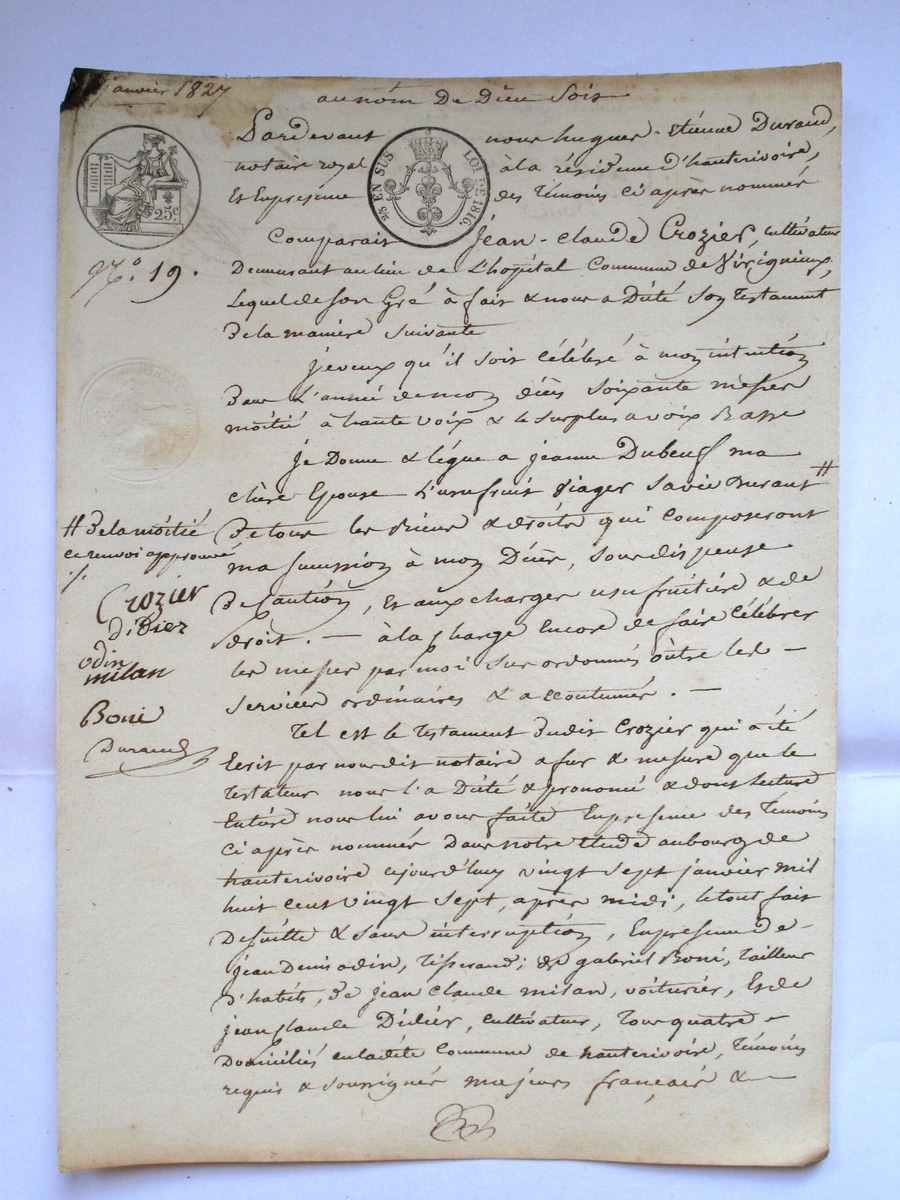 janvier 1827
au nom De Dieu Soit
Pardevant nous hugues-étienne Durand,
notaire royal à la résidence D'hauterivoire,
Et En presence des Témoins ci après nommés
25c
EN SUS LOI DE 1816.
Comparait Jean-Claude Crozier, cultivateur
Demeurant au lieu de L'hopital Commune de Virigneux,
Lequel de son Gré à fait & nous a Dicté Son Testament
De la manière suivante
N.o 19.
je veux qu'il soit célébré à mon intention
Dans L'année de mon décès soixante messes
moitié à haute voix & le surplus a voix Basse
je Donne & légue a jeanne Dubeuf ma
chère Epouse L'usufruit viager sa vie Durant #
De tous les Biens & droits qui composeront
ma succession à mon Décès, sous dispense
De Caution, Et aux charges usufruitière & de
droit. — à la charge Encore de faire célébrer
les messes par moi sus ordonnés outre les —
services ordinaires & accoutumés. —
# De la moitié
ce renvoi approuvé
./.
Crozier
Didier
odin
milan
Boni
Durand
Tel est le Testament Dudit Crozier qui a été
Ecrit par nous dit notaire a fur & mesure que le
Testateur nous l'a Dicté & prononcé & dont lecture
Entière nous lui avons faite En presence des Témoins
ci après nommés Dans notre Etude au bourg de
hauterivoire cejourd'huy vingt sept janvier mil
huit cent vingt sept, après midi, le tout fait
De suitte & sans interruption, En presence De —
jean Denis odin, Tisserand; de gabriel Boni, Tailleur
D'habits, De jean claude milan, voiturier, Et de
jean Claude Didier, cultivateur, Tous quatre —
Domiciliés en ladite Commune de hauterivoire, Témoins
requis & soussignés majeurs français & —